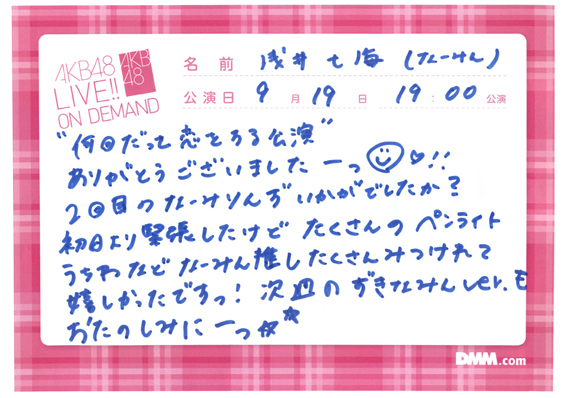 AKB48
LIVE!!
ON DEMAND
AKB
48
名前 浅井七海 (なーみん)
公演日 9月19日 19:00公演
"何回だって恋をする公演"
ありがとうございましたーっ ♡!!
2回目のなーみりんずいかがでしたか?
初日より緊張したけど たくさんの ペンライト
うちわなど なーみん推したくさんみつけれて
嬉しかったですっ! 次週の ずきなみん ver. も
おたのしみにーっ☆☆
DMM.com